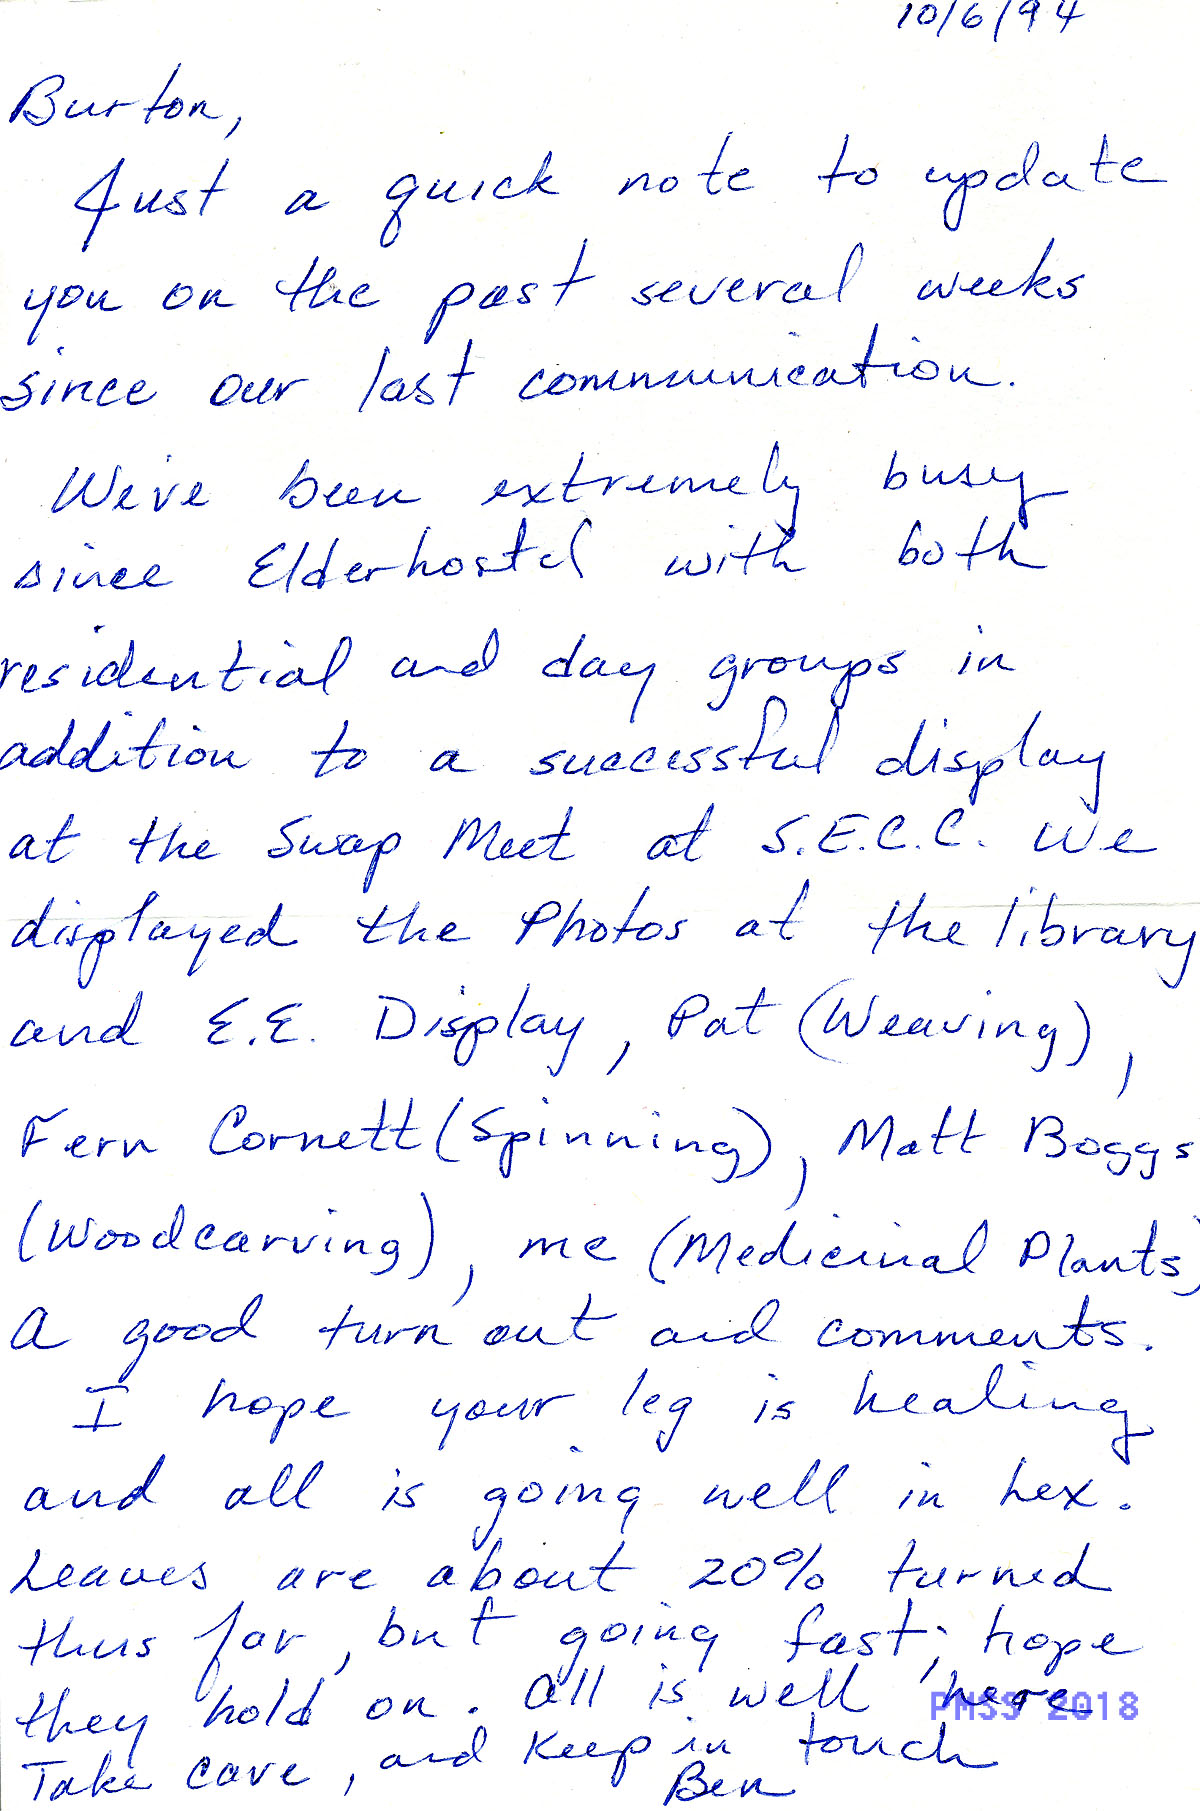 10/6/94
Burton,
Just a quick note to update
you on the past several weeks
since our last communication.
We've been extremely busy
since Elderhostel with both
residential and day groups in
addition to a successful display
at the Swap Meet at S.E.C.C. We
displayed the Photos at the library
and E.E. Display, Pat (Weaving),
Fern Cornett (Spinning), Matt Boggs
(Woodcarving), me (Medicinal Plants)
A good turn out and comments.
I hope your leg is healing
and all is going well in Lex.
Leaves are about 20% turned
thus far, but going fast; hope
they hold on. All is well here
PMSS 2018
Take care, and Keep in touch
Ben